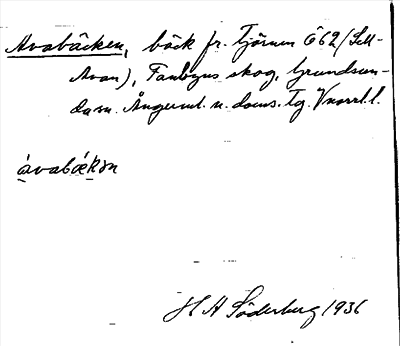 Avabäcken, bäck fr. Tjärnen Ö62/Sell-
Avan), Fanbyns skog, Grundsun-
da sn. Ångerml. n. doms. Tg. Vnorrl. l.
ávabǽkən
H A Söderberg 1936